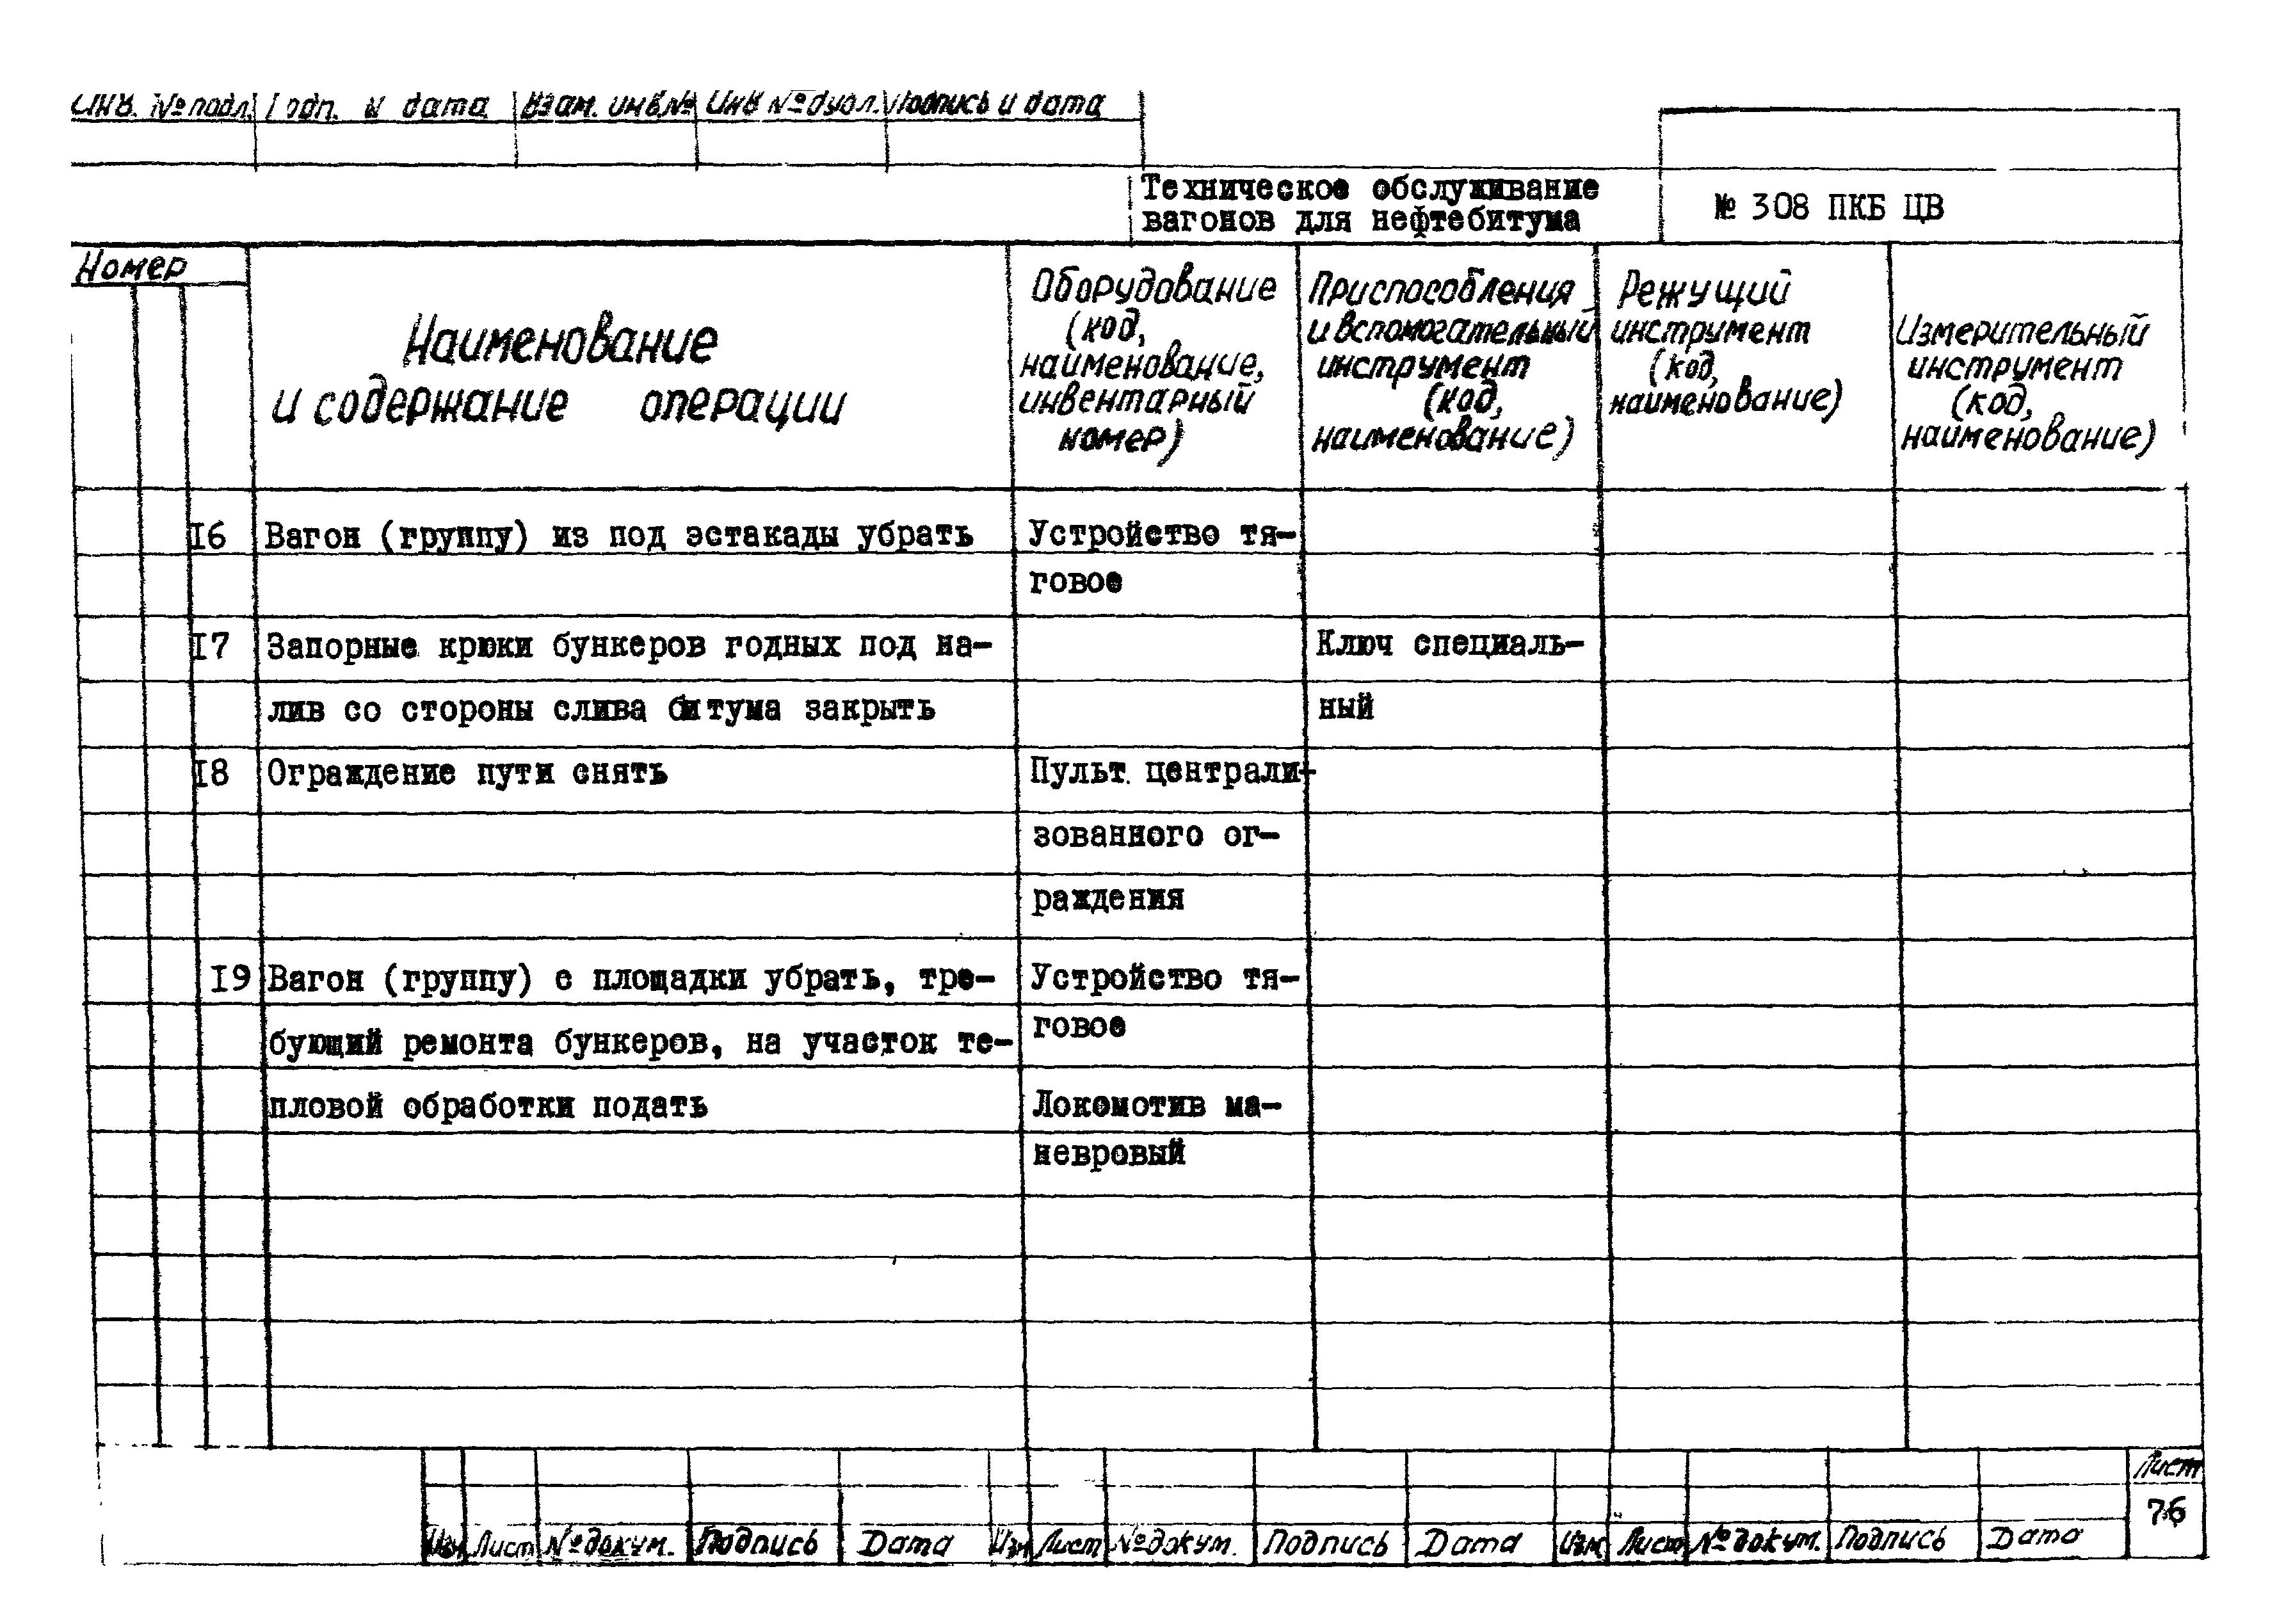 Инв. № подл. Подп. и дата Взам. инв.№ Инв № дубл. Подпись и дата
Техническое обслуживание
вагонов для нефтебитума
№ 308 ПКБ ЦВ
Номер
Наименование
и содержание операции
Оборудование
(код,
наименование,
инвентарный
номер)
Приспособления
и вспомогательный
инструмент
(код,
наименование)
Режущий
инструмент
(код,
наименование)
Измерительный
инструмент
(код,
наименование)
I6 Вагон (группу) из под эстакады убрать Устройство тя-
говое
I7 Запорные крюки бункеров годных под на- Ключ специаль-
лив со стороны слива битума закрыть ный
I8 Ограждение пути снять Пульт централи-
зованного ог-
раждения
I9 Вагон (группу) с площадки убрать, тре- Устройство тя-
говое
бующий ремонта бункеров, на участок те-
пловой обработки подать Локомотив ма-
невровый
Лист
76
Изм Лист № докум. Подпись Дата Изм Лист № докум. Подпись Дата Изм Лист № докум. Подпись Дата